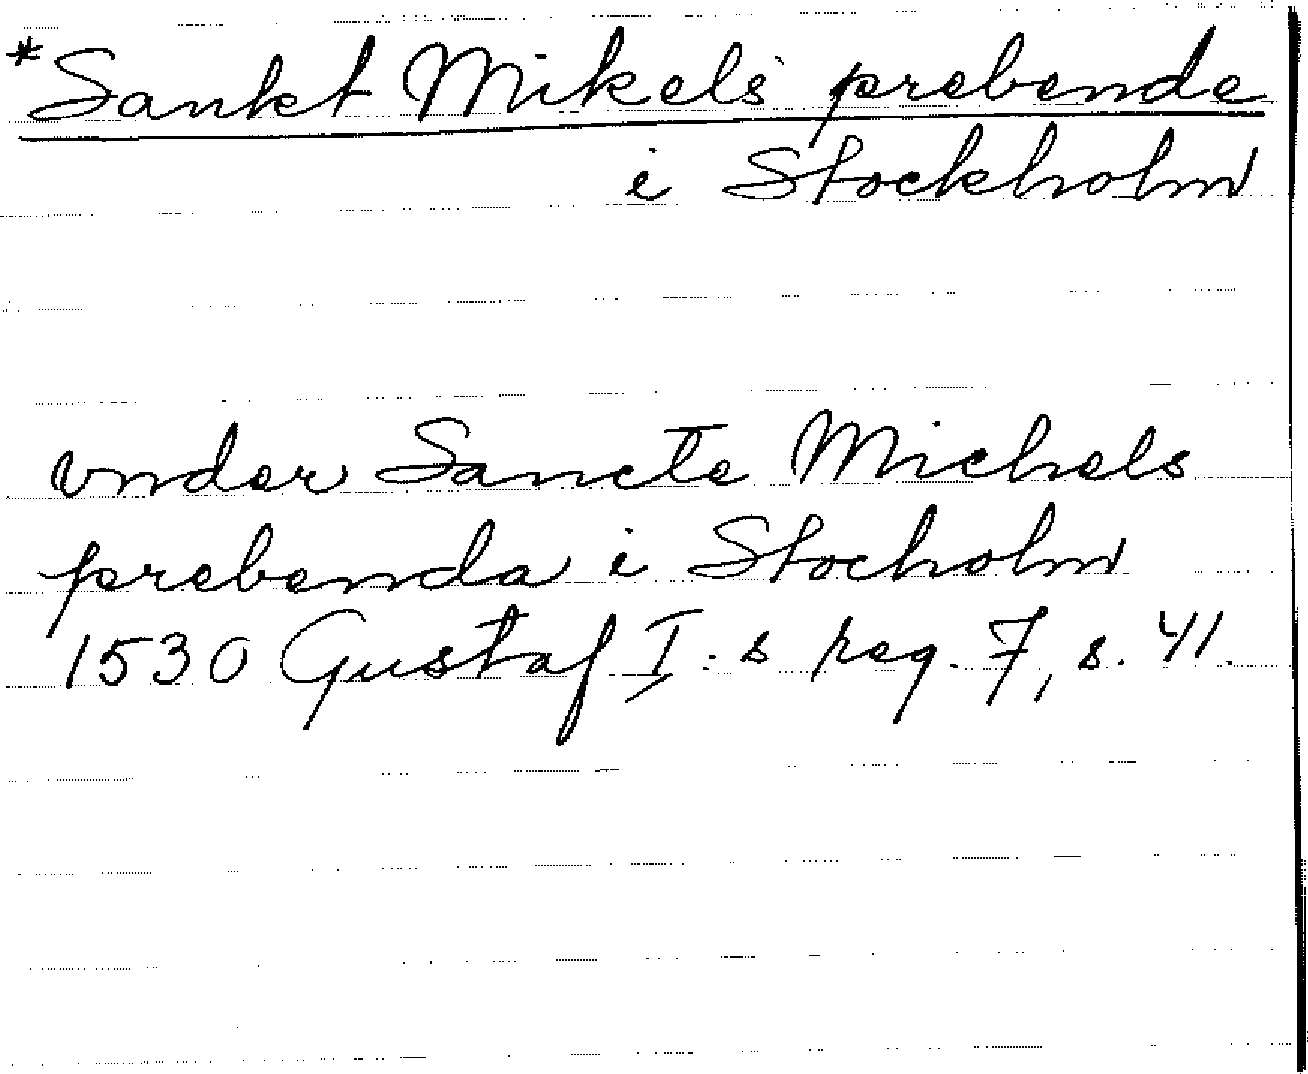 *Sankt Mikels prebende
i Stockholm
vnder Sancte Michels
prebenda i Stocholm
1530 Gustaf I:s reg. 7, s. 41.